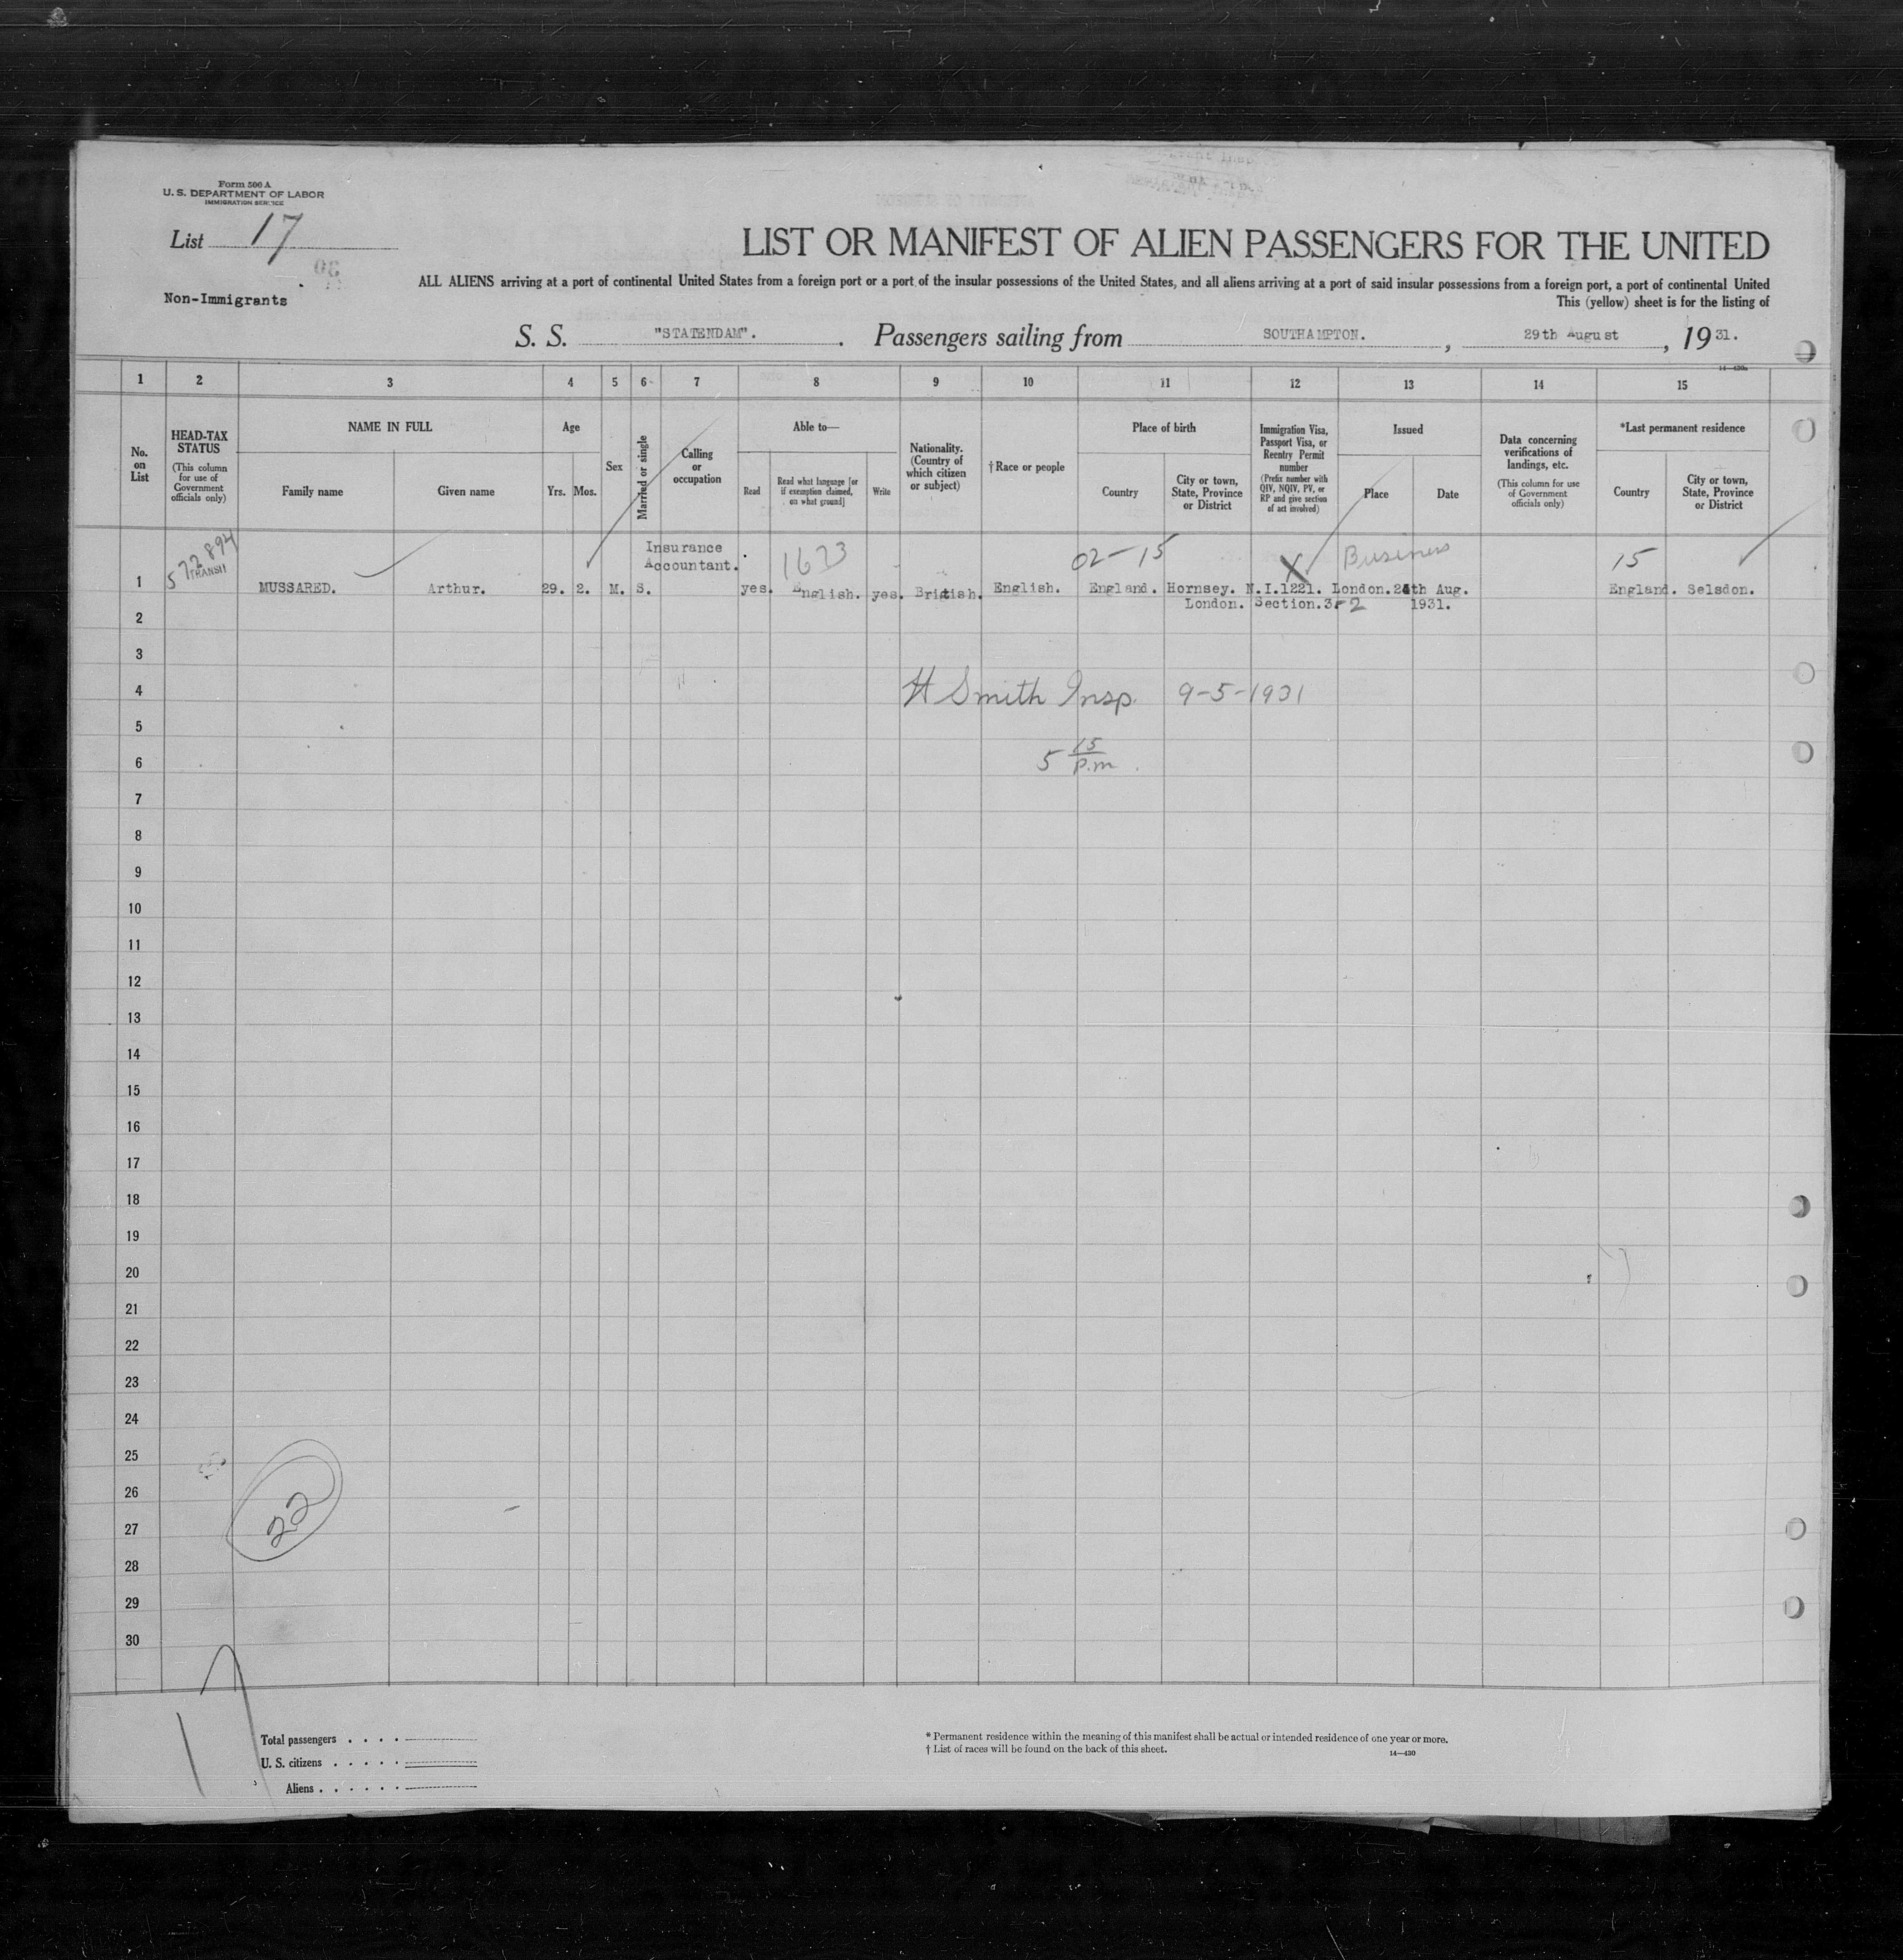 Form 500 A
U. S. DEPARTMENT OF LABOR
IMMIGRATION SERVICE
List 17
Non-Immigrants
LIST OR MANIFEST OF ALIEN PASSENGERS FOR THE UNITED
ALL ALIENS arriving at a port of continental United States from a foreign port or a port of the insular possessions of the United States, and all aliens arriving at a port of said insular possessions from a foreign port, a port of continental United
This (yellow) sheet is for the listing of
S. S. "STATENDAM". . Passengers sailing from SOUTHAMPTON. , 29th August , 19 31.
1 2 3 4 5 6 7 8 9 10 11 12 13 14 15
No. on List
HEAD-TAX STATUS
(This column for use of Government officials only)
NAME IN FULL
Family name
Given name
Age
Yrs. Mos.
Sex
Married or single
Calling or occupation
Able to—
Read
Read what language [or if exemption claimed, on what ground]
Write
Nationality. (Country of which citizen or subject)
† Race or people
Place of birth
Country
City or town, State, Province or District
Immigration Visa, Passport Visa, or Reentry Permit number
(Prefix number with QIV, NQIV, PV, or RP and give section of act involved)
Issued
Place
Date
Data concerning verifications of landings, etc.
(This column for use of Government officials only)
*Last permanent residence
Country
City or town, State, Province or District
572894 Insurance 1633 02-15 X Business 15
TRANSIT Accountant.
1 MUSSARED. Arthur. 29. 2. M. S. yes. English. yes. British. English. England. Hornsey. N.I.1221. London. 24th Aug. England. Selsdon.
2 London. Section.3-2 1931.
3
4 H Smith Insp. 9-5-1931
5
6 5 15 p.m.
7
8
9
10
11
12
13
14
15
16
17
18
19
20
21
22
23
24
25
26
27
28
29
30
22
17
Total passengers . . . .
U. S. citizens . . . . .
Aliens . . . . . .
* Permanent residence within the meaning of this manifest shall be actual or intended residence of one year or more.
† List of races will be found on the back of this sheet.
14—430